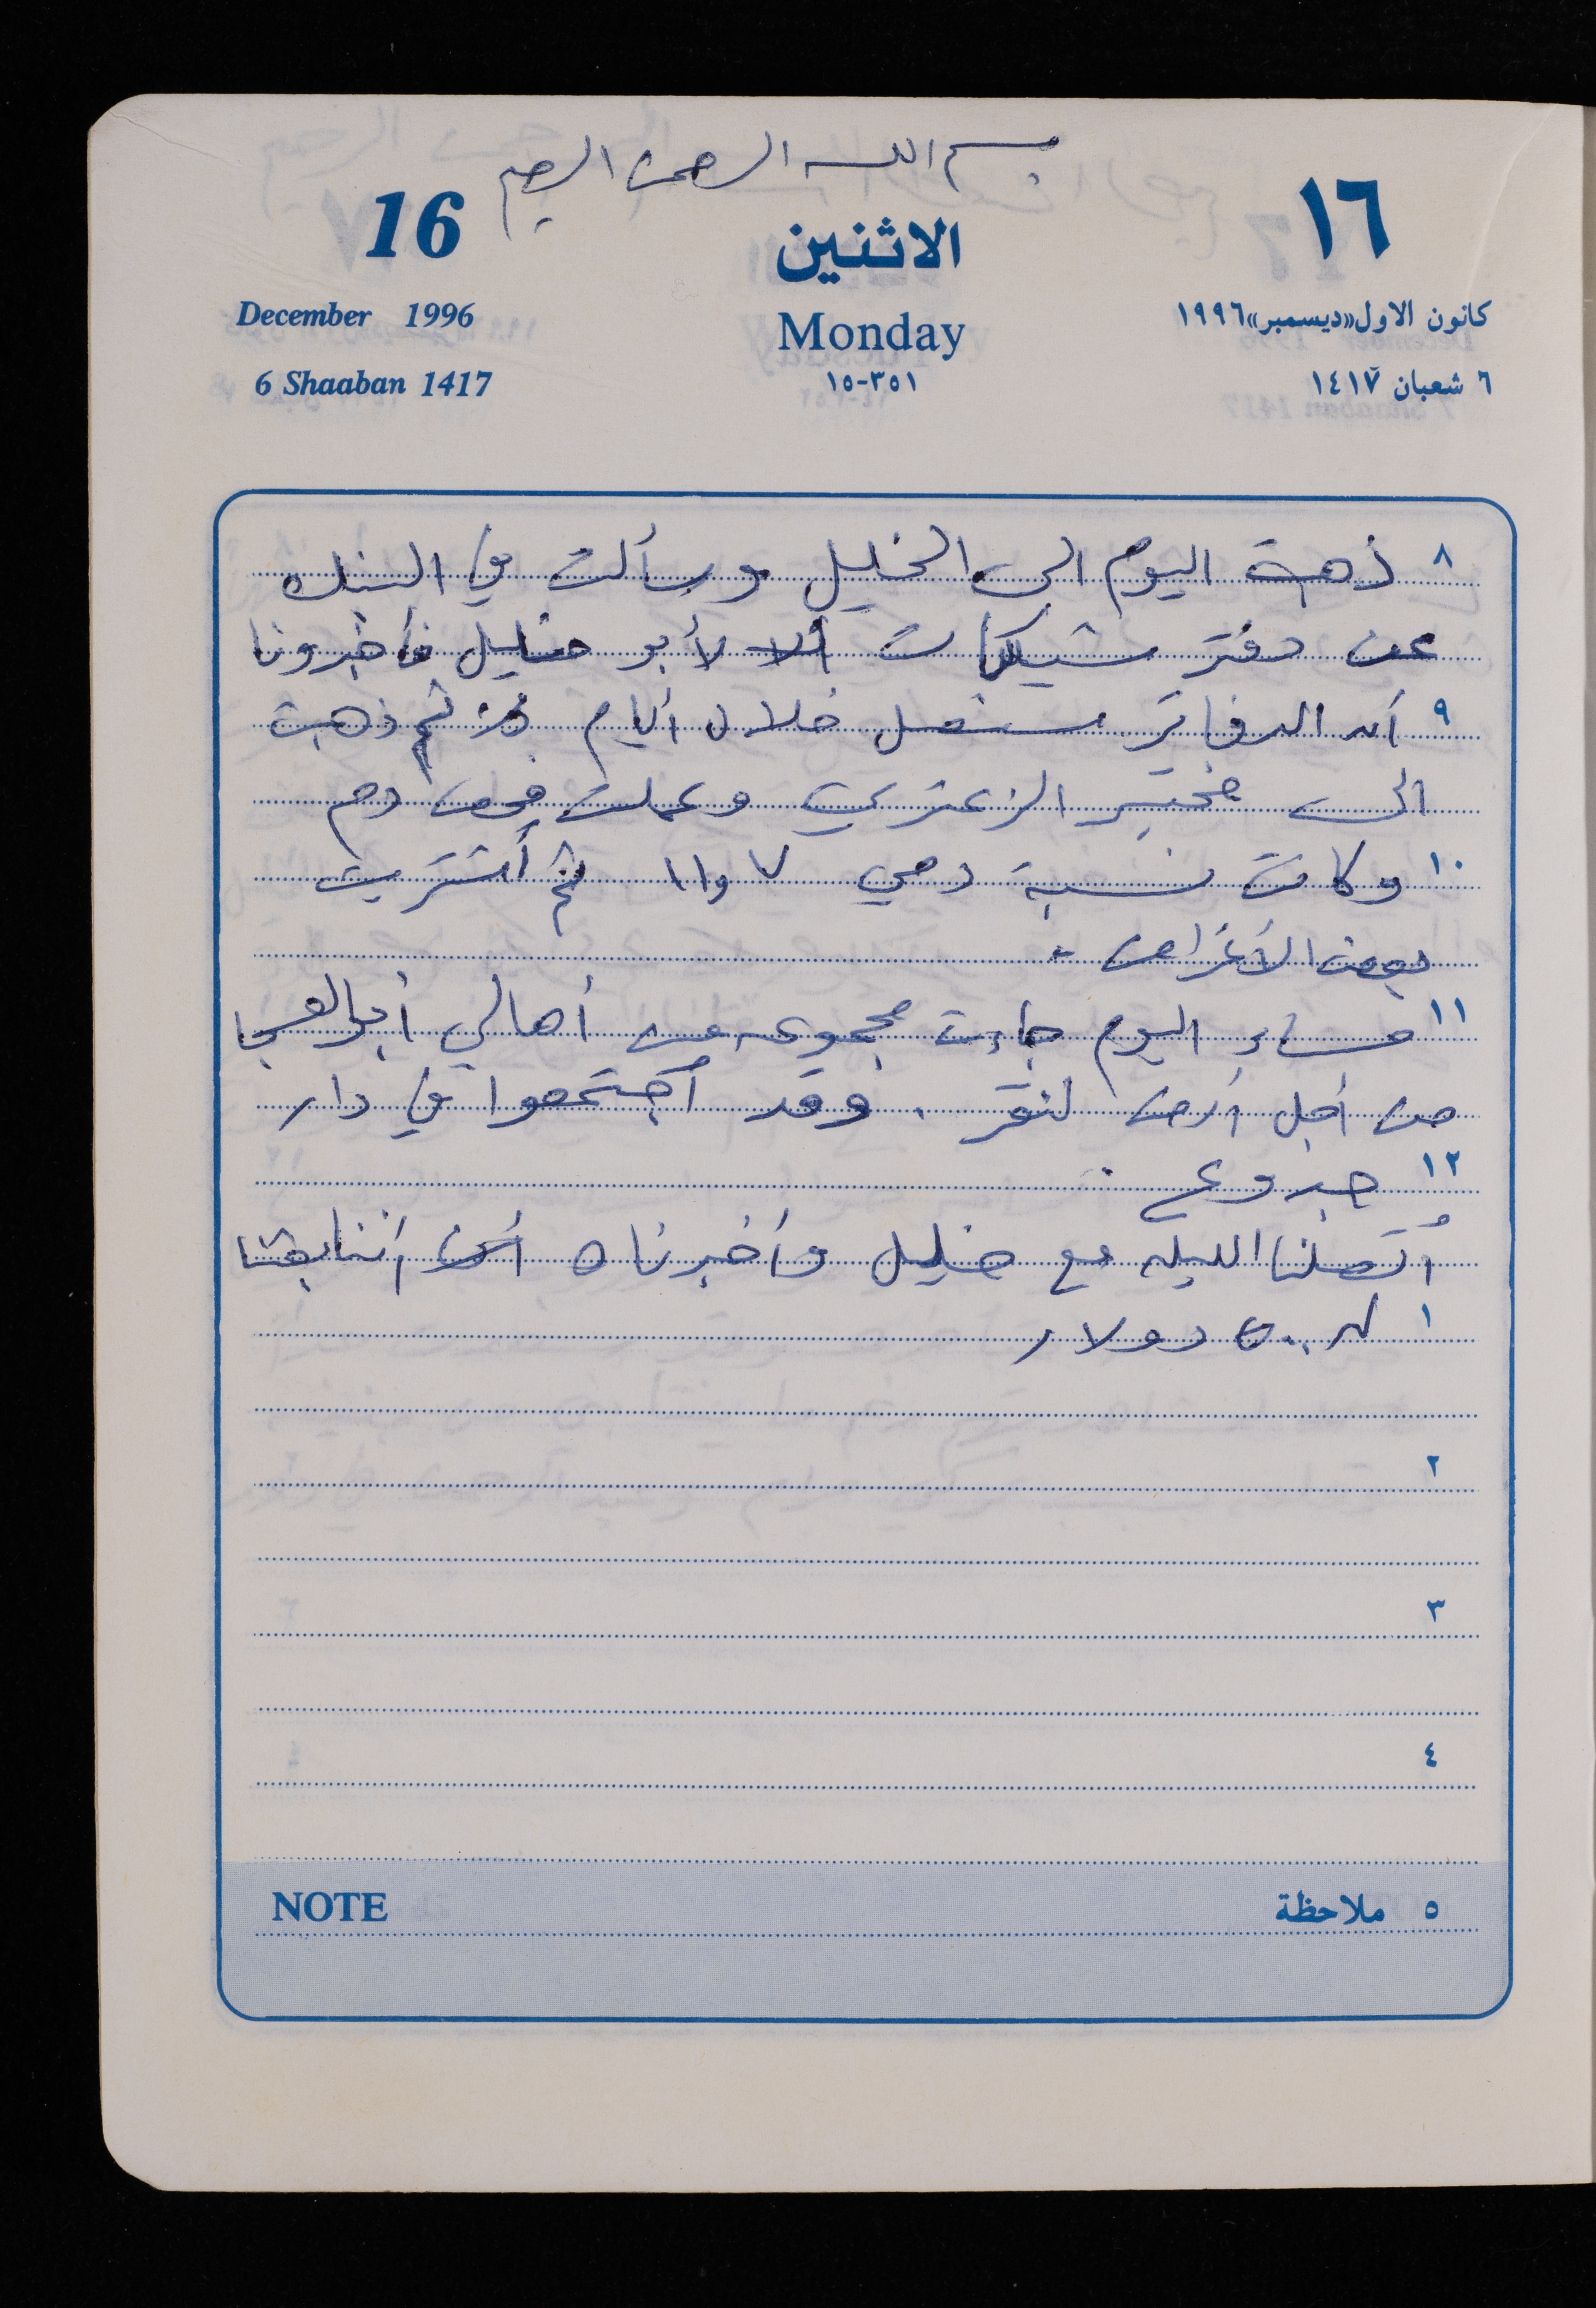 بسم الله الرحمن الرحيم
16 الاثنين ١٦
December 1996 Monday كانون الاول«ديسمبر»١٩٩٦
6 Shaaban 1417 ٣٥١-١٥ ٦ شعبان ١٤١٧
٨ ذهبة اليوم الى الخليل وسألت في البنك
عن دفتر شيكات لأبو خليل فأخبرونا
٩ أن الدفاتر ستصل خلال أيام ثم ذهبت
الى مختبر الزعتري وعملت فحص دم
١٠ وكانت نسبة دمي ٧ و١١ ثم أشتريت
بعض الأغراض .
١١ مساء اليوم جاءت مجموعه من أهالي أبو
من أجل أرض لنقر . وقد أجتمعوا في دار
١٢ جدوع .
أتصلنا الليله مع خليل وأخبرناه أننا بعثنا
١ له ٥٠٠ دولار
٢
٣
٤
NOTE ٥ ملاحظة